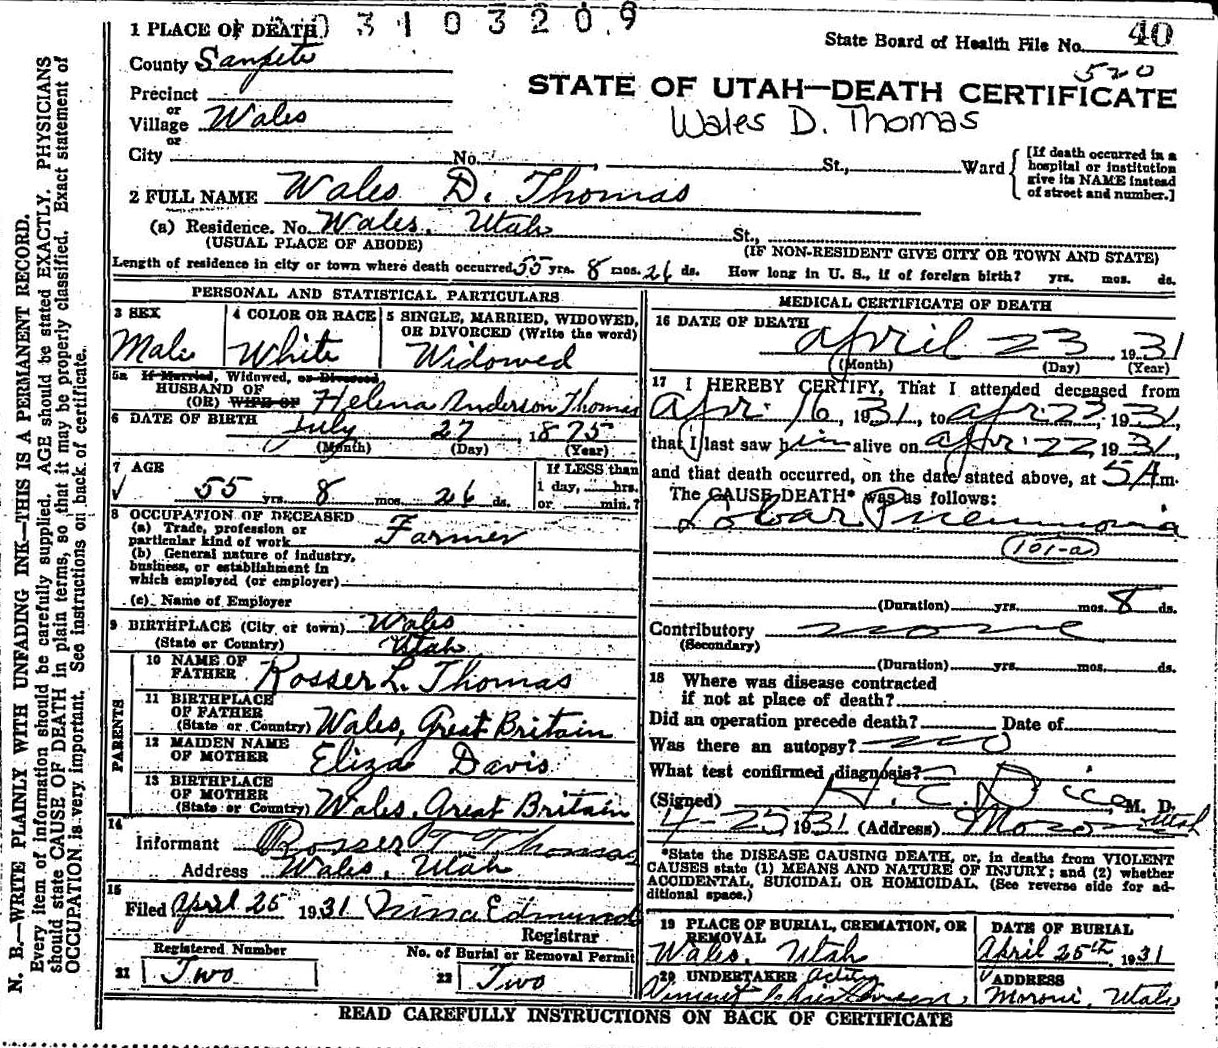 N. B.—WRITE PLAINLY WITH UNFADING INK—THIS IS A PERMANENT RECORD.
Every item of information should be carefully supplied. AGE should be stated EXACTLY. PHYSICIANS
should state CAUSE OF DEATH in plain terms, so that it may be properly classified. Exact statement of
OCCUPATION is very important. See instructions on back of certificate.
3 1 0 3 2 0 9
1 PLACE OF DEATH
State Board of Health File No. 40
520
County Sanpete
STATE OF UTAH—DEATH CERTIFICATE
Wales D. Thomas
Precinct
or
Village Wales
or
City No. St., Ward
[If death occurred in a
hospital or institution
give its NAME instead
of street and number.]
2 FULL NAME Wales D. Thomas
(a) Residence. No. Wales, Utah St.,
(USUAL PLACE OF ABODE) (IF NON-RESIDENT GIVE CITY OR TOWN AND STATE)
Length of residence in city or town where death occurred 55 yrs. 8 mos. 26 ds. How long in U. S., if of foreign birth? yrs. mos. ds.
PERSONAL AND STATISTICAL PARTICULARS
3 SEX
Male
4 COLOR OR RACE
White
5 SINGLE, MARRIED, WIDOWED,
OR DIVORCED (Write the word)
Widowed
5a If Married, Widowed, or Divorced
HUSBAND OF
(OR) WIFE OF Helena Anderson Thomas
6 DATE OF BIRTH July 27 1875
(Month) (Day) (Year)
7 AGE
55 yrs. 8 mos. 26 ds.
If LESS than
1 day, hrs.
or min.?
8 OCCUPATION OF DECEASED
(a) Trade, profession or
particular kind of work Farmer
(b) General nature of industry,
business, or establishment in
which employed (or employer)
(c) Name of Employer
9 BIRTHPLACE (City or town) Wales
(State or Country) Utah
PARENTS
10 NAME OF
FATHER Rosser L. Thomas
11 BIRTHPLACE
OF FATHER
(State or Country) Wales, Great Britain
12 MAIDEN NAME
OF MOTHER Eliza Davis
13 BIRTHPLACE
OF MOTHER
(State or Country) Wales, Great Britain
14
Informant Rosser T Thomas
Address Wales, Utah
15
Filed April 25 1931 Nina Edmund
Registrar
Registered Number
21 Two
No. of Burial or Removal Permit
22 Two
MEDICAL CERTIFICATE OF DEATH
16 DATE OF DEATH
April 23, 1931
(Month) (Day) (Year)
17 I HEREBY CERTIFY, That I attended deceased from
Apr. 16, 1931, to Apr. 23, 1931,
that I last saw him alive on Apr. 22, 1931,
and that death occurred, on the date stated above, at 5 A.m.
The CAUSE DEATH* was as follows:
Lobar Pneumonia
101-a
(Duration) yrs. mos. 8 ds.
Contributory none
(Secondary)
(Duration) yrs. mos. ds.
18 Where was disease contracted
if not at place of death?
Did an operation precede death? Date of
Was there an autopsy? no
What test confirmed diagnosis?
(Signed) M. D.
4-25 1931 (Address) Moroni Utah
*State the DISEASE CAUSING DEATH, or, in deaths from VIOLENT
CAUSES state (1) MEANS AND NATURE OF INJURY; and (2) whether
ACCIDENTAL, SUICIDAL OR HOMICIDAL. (See reverse side for ad-
ditional space.)
19 PLACE OF BURIAL, CREMATION, OR
REMOVAL
Wales, Utah
DATE OF BURIAL
April 25th, 1931
20 UNDERTAKER Acting
Vincent Christensen
ADDRESS
Moroni, Utah
READ CAREFULLY INSTRUCTIONS ON BACK OF CERTIFICATE